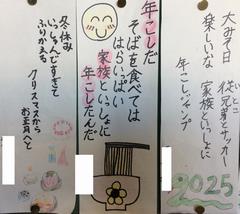 大みそ日
楽しいな 従兄弟とサッカー
家族といっしょに
年こしジャンプ
2025
年こしだ
そばを食べては
はらいっぱい
家族といっしょに
年こしたんだ
冬休み
いっしゅんですぎて
ふりかえる
クリスマスから
お正月へと